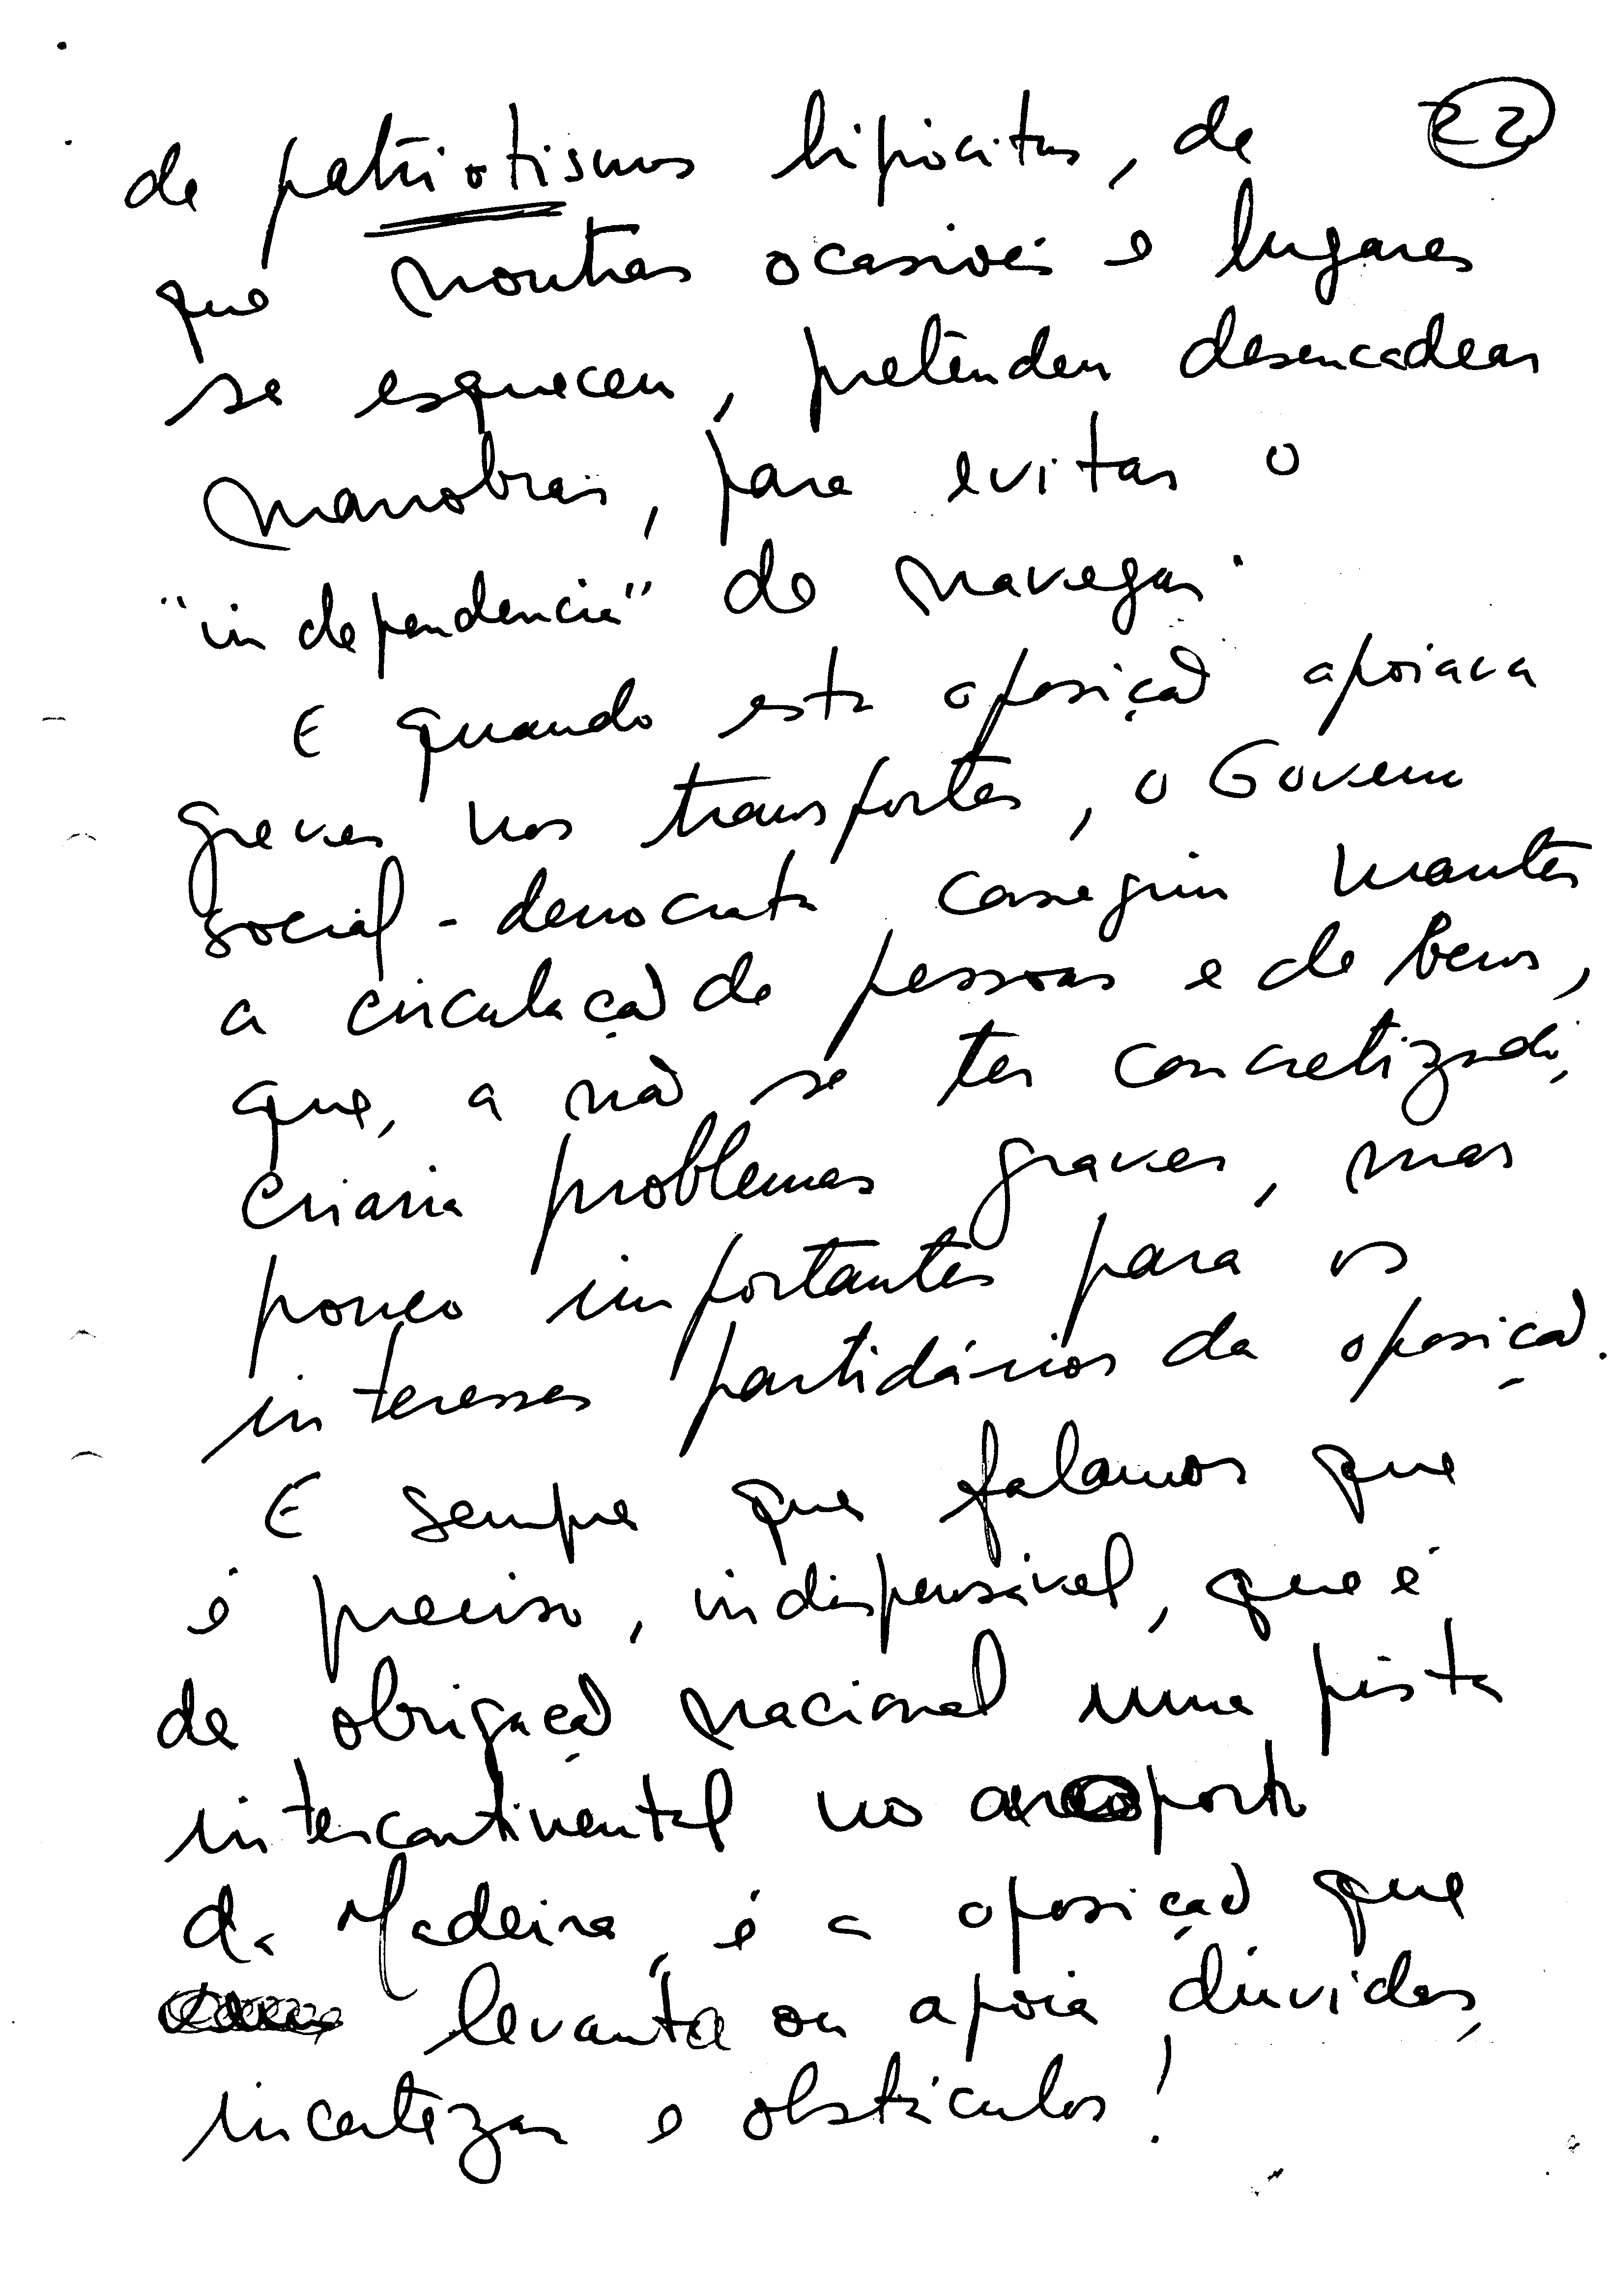 22
de patriotismos hipócritas, de
que noutras ocasiões e lugares
se esquecem, pretendem desencadear
manobras, para evitar o
"independencia" de navegar.
E quando esta oposição apoiava
greves nos transportes, o Governo
social-democrata conseguiu manter
a circulação de pessoas e de bens,
que, a não se ter concretizado,
criaria problemas graves, mas
pouco importantes para os
interesses partidários da oposição.
E sempre que falamos que
é preciso, indispensável, que é
de obrigação nacional uma pista
intercontinental no aeroporto
da Madeira, é a oposição que
levanta ou apoia dúvidas,
incertezas e obstáculos!